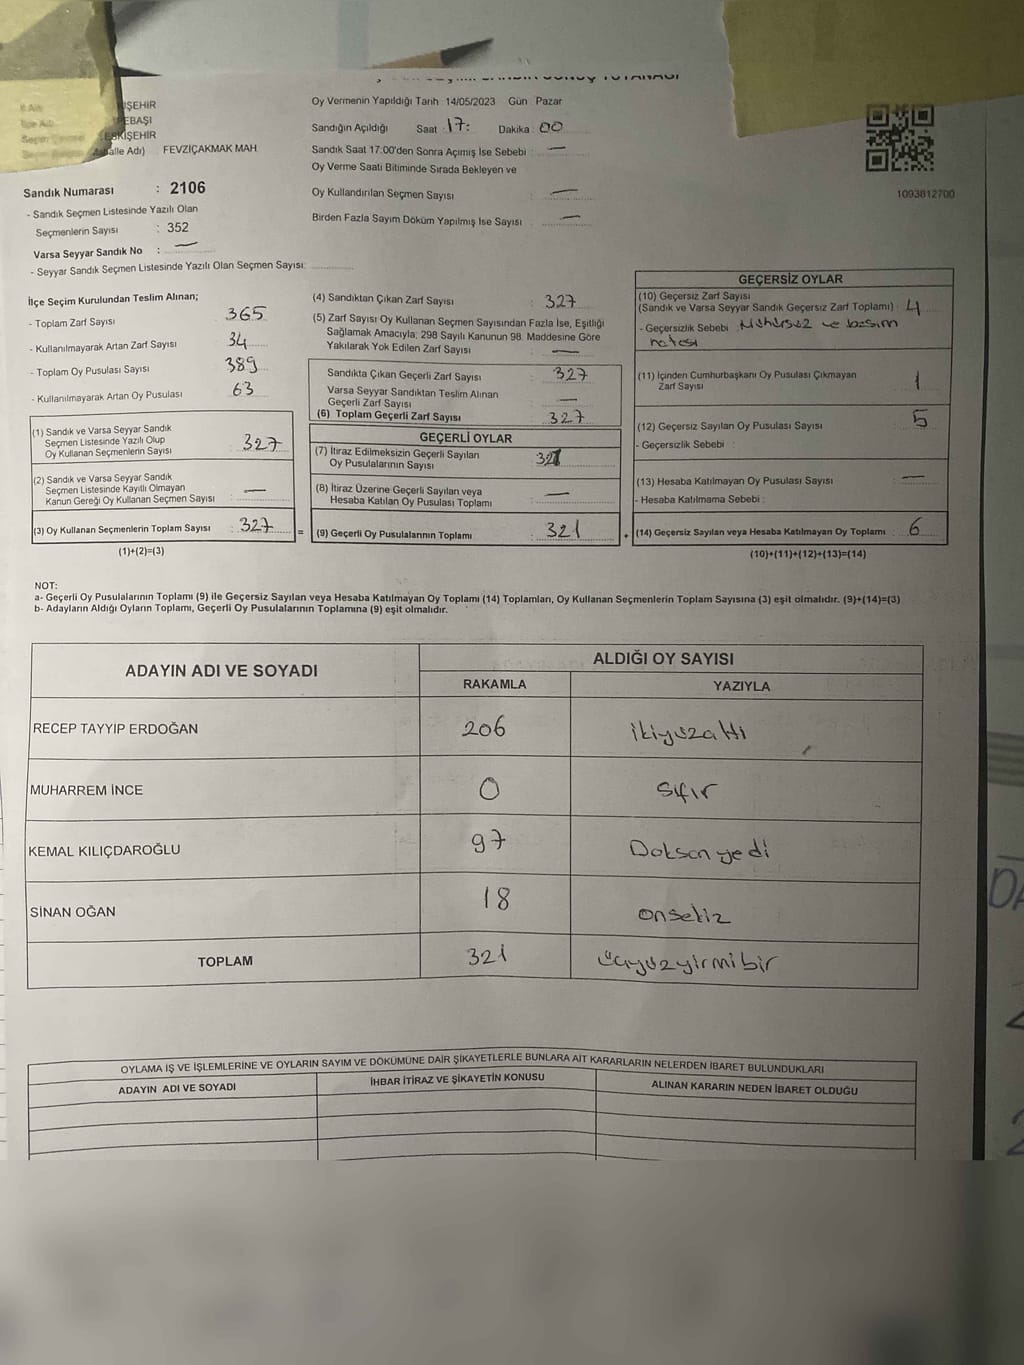 Oy Vermenin Yapıldığı Tarih : 14/05/2023 Gün : Pazar
Sandığın Açıldığı Saat : 17: Dakika : 00
Sandık Saat 17:00'den Sonra Açılmış İse Sebebi : —
Oy Verme Saati Bitiminde Sırada Bekleyen ve
Oy Kullandırılan Seçmen Sayısı : —
Birden Fazla Sayım Döküm Yapılmış İse Sayısı : —
IŞEHİR
PEBAŞI
ESKİŞEHİR
alle Adı) FEVZİÇAKMAK MAH.
Sandık Numarası : 2106
- Sandık Seçmen Listesinde Yazılı Olan
Seçmenlerin Sayısı : 352
Varsa Seyyar Sandık No : —
- Seyyar Sandık Seçmen Listesinde Yazılı Olan Seçmen Sayısı:
1093812700
İlçe Seçim Kurulundan Teslim Alınan;
- Toplam Zarf Sayısı : 365
- Kullanılmayarak Artan Zarf Sayısı : 34
- Toplam Oy Pusulası Sayısı : 389
- Kullanılmayarak Artan Oy Pusulası : 63
(1) Sandık ve Varsa Seyyar Sandık
Seçmen Listesinde Yazılı Olup
Oy Kullanan Seçmenlerin Sayısı : 327
(2) Sandık ve Varsa Seyyar Sandık
Seçmen Listesinde Kayıtlı Olmayan
Kanun Gereği Oy Kullanan Seçmen Sayısı : —
(3) Oy Kullanan Seçmenlerin Toplam Sayısı : 327 =
(1)+(2)=(3)
(4) Sandıktan Çıkan Zarf Sayısı : 327
(5) Zarf Sayısı Oy Kullanan Seçmen Sayısından Fazla İse, Eşitliği
Sağlamak Amacıyla; 298 Sayılı Kanunun 98. Maddesine Göre
Yakılarak Yok Edilen Zarf Sayısı : —
Sandıkta Çıkan Geçerli Zarf Sayısı : 327
Varsa Seyyar Sandıktan Teslim Alınan
Geçerli Zarf Sayısı : —
(6) Toplam Geçerli Zarf Sayısı : 327
GEÇERLİ OYLAR
(7) İtiraz Edilmeksizin Geçerli Sayılan
Oy Pusulalarının Sayısı : 321
(8) İtiraz Üzerine Geçerli Sayılan veya
Hesaba Katılan Oy Pusulası Toplamı : —
(9) Geçerli Oy Pusulalarının Toplamı : 321 +
GEÇERSİZ OYLAR
(10) Geçersiz Zarf Sayısı
(Sandık ve Varsa Seyyar Sandık Geçersiz Zarf Toplamı) : 4
- Geçersizlik Sebebi : Mühürsüz ve basım
hatası
(11) İçinden Cumhurbaşkanı Oy Pusulası Çıkmayan
Zarf Sayısı : 1
(12) Geçersiz Sayılan Oy Pusulası Sayısı : 5
- Geçersizlik Sebebi :
(13) Hesaba Katılmayan Oy Pusulası Sayısı : —
- Hesaba Katılmama Sebebi :
(14) Geçersiz Sayılan veya Hesaba Katılmayan Oy Toplamı : 6
(10)+(11)+(12)+(13)=(14)
NOT:
a- Geçerli Oy Pusulalarının Toplamı (9) ile Geçersiz Sayılan veya Hesaba Katılmayan Oy Toplamı (14) Toplamları, Oy Kullanan Seçmenlerin Toplam Sayısına (3) eşit olmalıdır. (9)+(14)=(3)
b- Adayların Aldığı Oyların Toplamı, Geçerli Oy Pusulalarının Toplamına (9) eşit olmalıdır.
ADAYIN ADI VE SOYADI ALDIĞI OY SAYISI
RAKAMLA YAZIYLA
RECEP TAYYİP ERDOĞAN 206 ikiyüzaltı
MUHARREM İNCE 0 Sıfır
KEMAL KILIÇDAROĞLU 97 Doksanyedi
SİNAN OĞAN 18 onsekiz
TOPLAM 321 üçyüzyirmibir
OYLAMA İŞ VE İŞLEMLERİNE VE OYLARIN SAYIM VE DÖKÜMÜNE DAİR ŞİKAYETLERLE BUNLARA AİT KARARLARIN NELERDEN İBARET BULUNDUKLARI
ADAYIN ADI VE SOYADI İHBAR İTİRAZ VE ŞİKAYETİN KONUSU ALINAN KARARIN NEDEN İBARET OLDUĞU